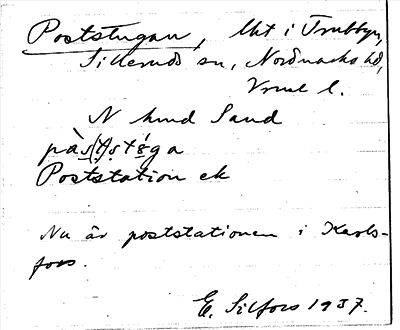 Poststugan, lht i Trubbyn,
Silleruds sn, Nordmarks hd,
Vrml l.
N hmd Sand
pås(t)stS̀ga
Poststation ek
Nu är poststationen i Karls-
fors.
E. Silfors 1937.